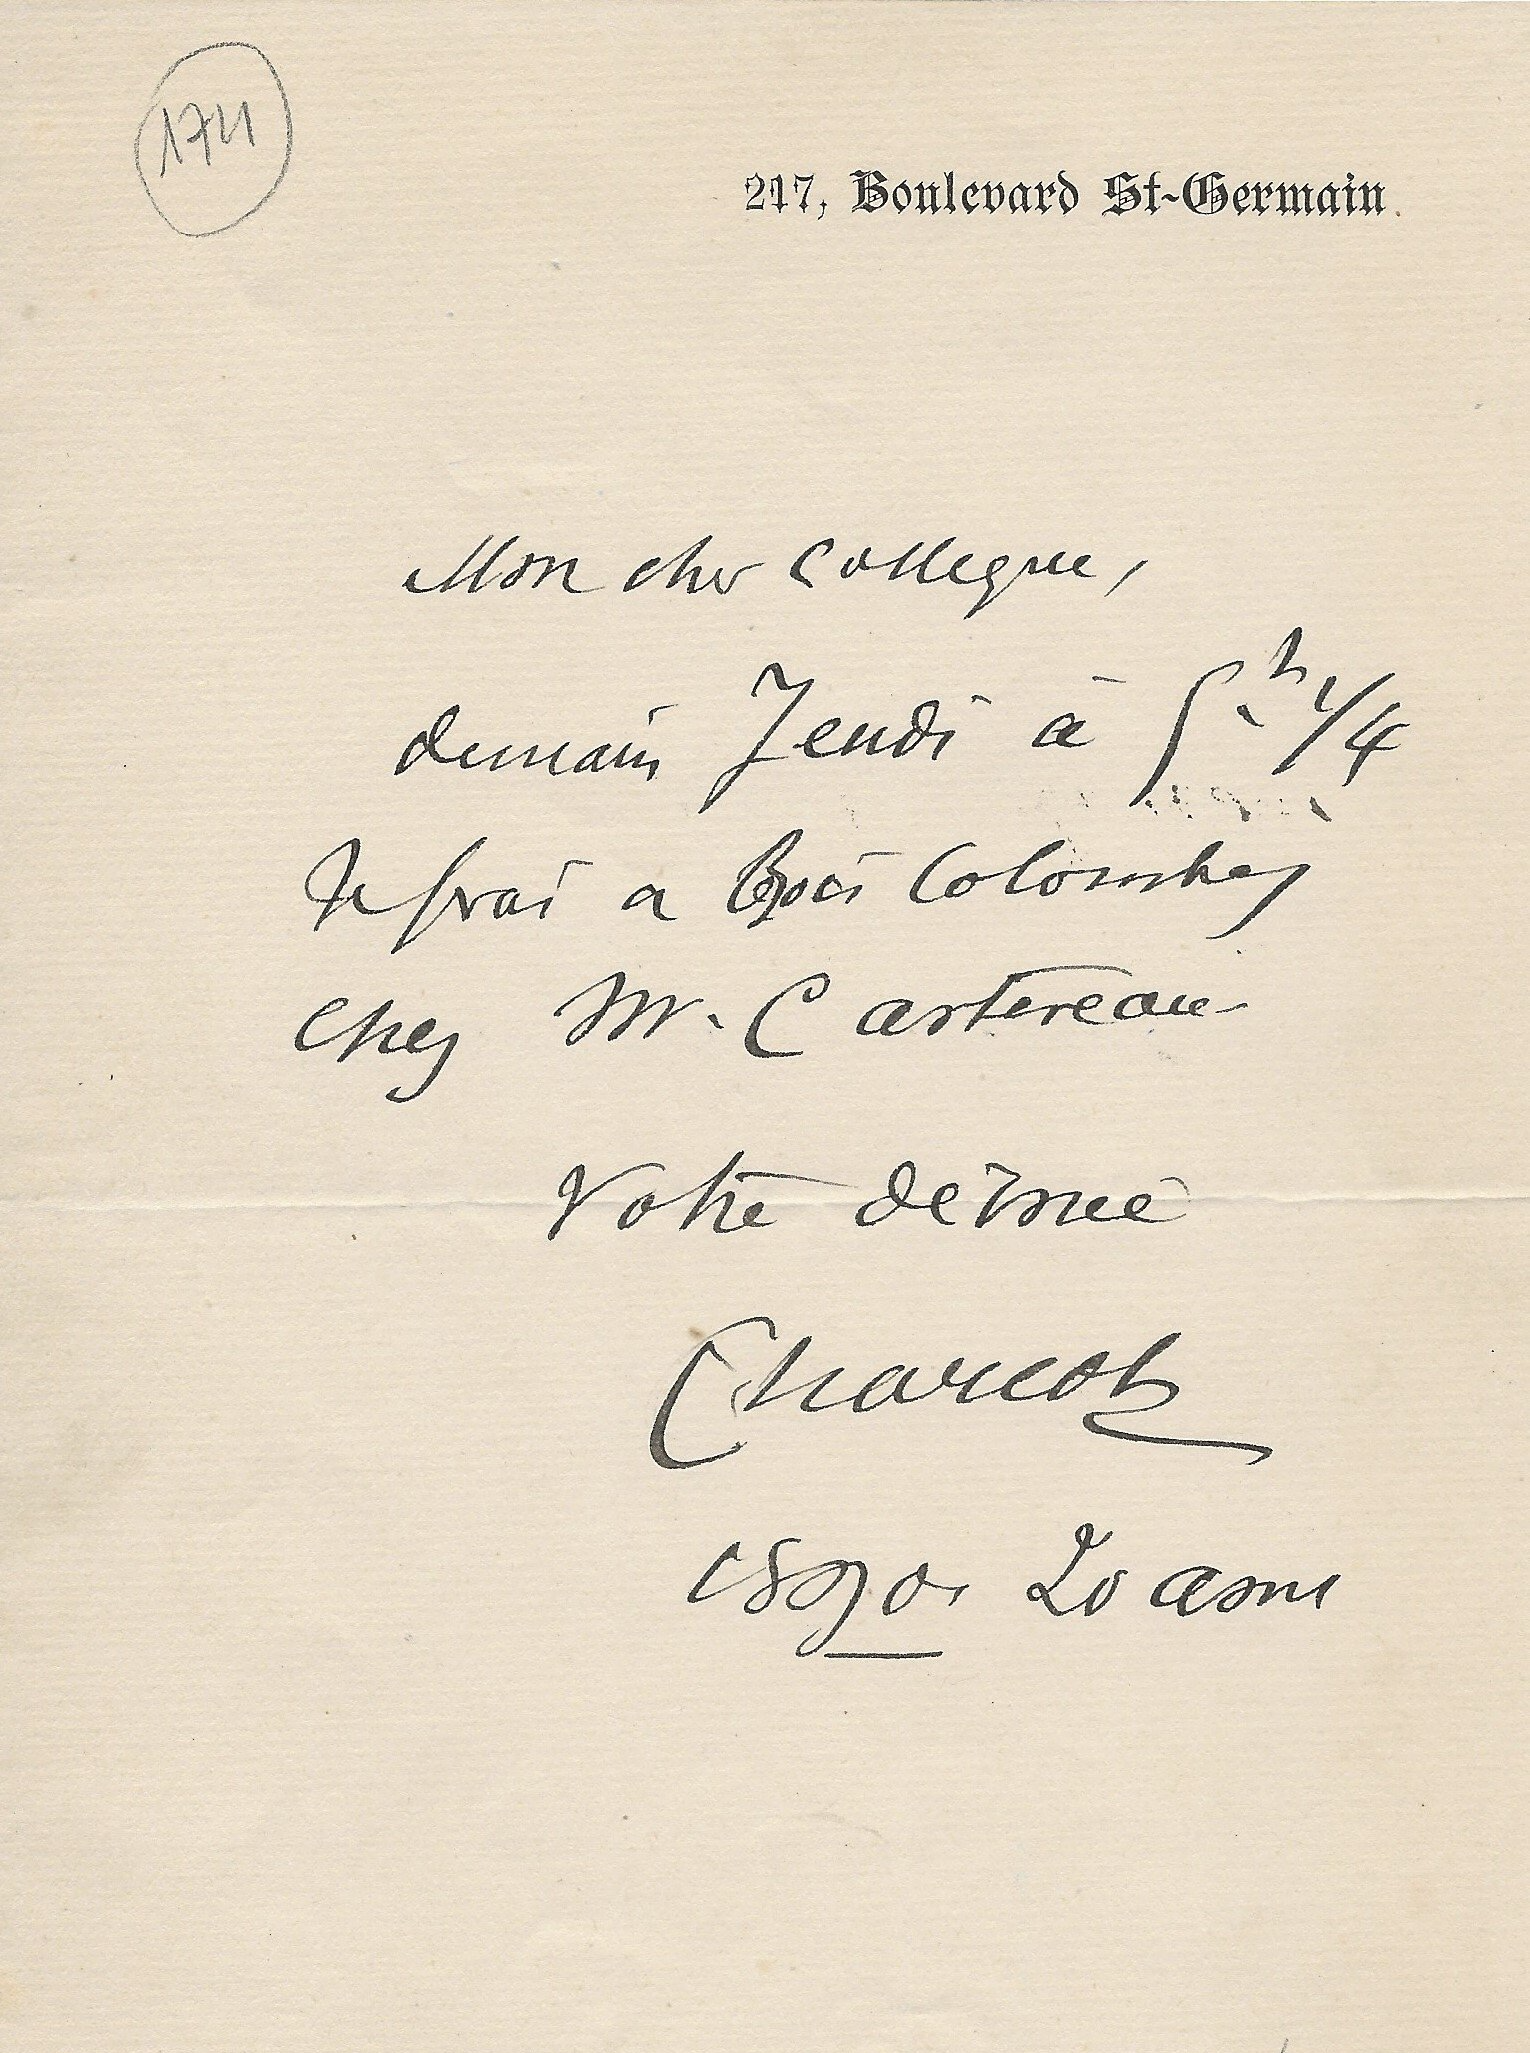 1741
217, Boulevard St-Germain.
Mon cher Collegue,
demain Jeudi à 5h 1/4
Je serai a Bois Colombes
chez Mr. Castereau
Votre devoué
Charcot
1890. 20 aout